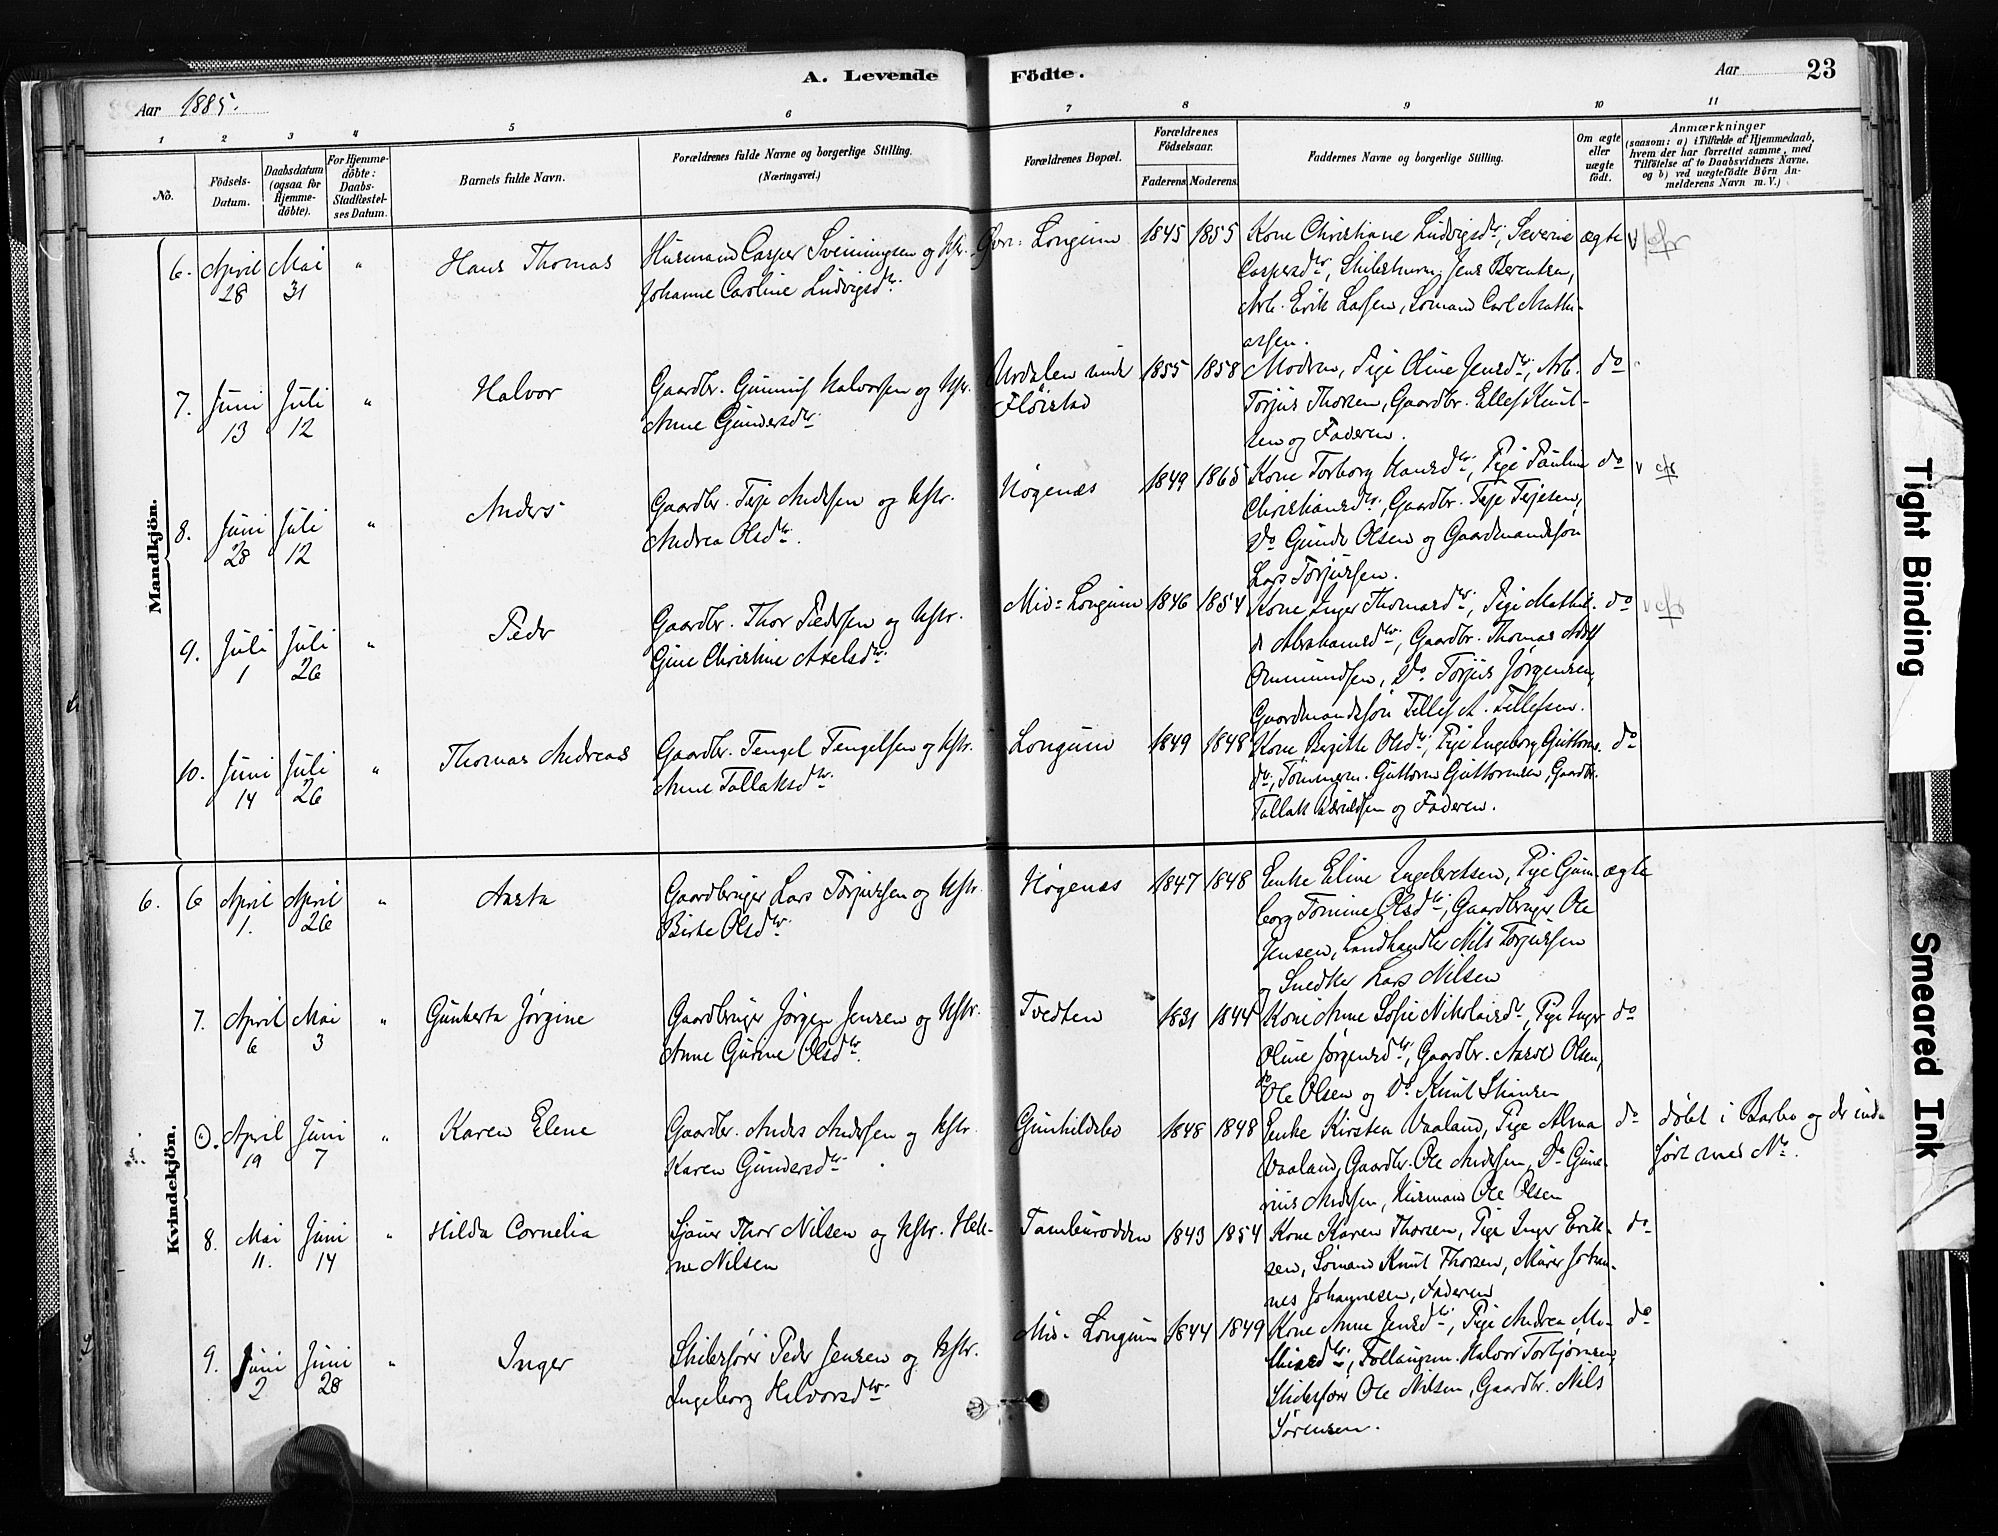 A. Levende Födte.
Aar 1885.
Aar 23
1 2 3 4 5 6 7 8 9 10 11
No.
Födsels-
Datum.
Daabsdatum
(ogsaa for
Hjemme-
döbte).
For Hjemme-
döbte:
Daabs-
Stadfæstel-
ses Datum.
Barnets fulde Navn.
Forældrenes fulde Navne og borgerlige Stilling.
(Næringsvei.)
Forældrenes Bopæl.
Forældrenes
Födselsaar.
Faderens. Moderens.
Faddernes Navne og borgerlige Stilling.
Om ægte
eller
uægte
födt.
Anmærkninger
(saasom: a) i Tilfælde af Hjemmedaab,
hvem der har forrettet samme, med
Tilföielse af to Daabsvidners Navne,
og b) ved uægtefödte Börn An-
melderens Navn m. V.)
Mandkjön.
6. April 28 Mai 31 " Hans Thomas
Husmand Casper Sveinungsen og Hstr.
Johanne Caroline Ludvigsdtr.
Øvr: Longum 1845 1855
Kone Christiane Ludvigsdtr, Severine
Caspersdtr, Jens Berentsen,
Arb. Erik Larsen, Sømand Carl Mathi-
assen.
ægte
7. Juni 13 Juli 12 " Halvor
Gaardbr. Gunnuf Halvorsen og Hstr.
Anne Gundersdtr.
Urdalen under
Fløistad
1855 1858
Modren, Pige Oline Jensdtr, Arb.
Torjus Thorsen, Gaardbr. Ellef Knut-
sen og Faderen.
do
8. Juni 28 Juli 12 " Anders
Gaardbr. Terje Andersen og Hstr.
Andrea Olsdtr.
Høgenæs 1849 1865
Kone Torborg Hansdtr, Pige Pauline
Christiansdtr, Gaardbr. Terje Terjesen,
Do Gunder Olsen og Gaardmandssøn
Lars Torjussen.
do
9. Juli 1 Juli 26 " Peder
Gaardbr. Thor Pedersen og Hstr.
Gine Christine Axelsdtr.
Mid-Longum 1846 1854
Kone Inger Thomasdtr, Pige Mathil-
de Abrahamsdtr, Gaardbr. Thomas Adolf
Ommundsen, Do Torjus Jørgensen,
Gaardmandssøn Tellef A. Tellefsen.
do
10. Juni 14 Juli 26 " Thomas Andreas
Gaardbr. Tengel Tengelsen og Hstr.
Anne Tallaksdtr.
Longum 1849 1848
Kone Birgitte Olsdtr, Pige Ingeborg Guttorms-
dtr, Tømmerm. Guttorm Guttormsen, Gaardbr.
Tallak og Faderen.
do
Kvindekjön.
6. 6 April 1. April 26 " Aasta
Gaardbruger Lars Torjussen og Hstr.
Birte Olsdtr.
Høgenæs 1847 1848
Enke Eline Ingebretsen, Pige Gun-
borg Tomine Olsdtr, Gaardbruger Ole
Jensen, Landhandler Nils Torjussen
og Snedker Lars Nilsen
ægte
7. April 6 Mai 3 " Gunberta Jørgine
Gaardbruger Jørgen Jensen og Hstr.
Anne Gurine Olsdtr.
Tvedten 1831 1844
Kone Anne Sofie Nikolaisdtr, Pige Inger
Oline Jørgensdtr, Gaardbr. Aasold Olsen,
do Ole Olsen og Do Knut Hansen
do
April 19 Juni 7 " Karen Elene
Gaardbr. Anders Andersen og Hstr.
Karen Gundersdtr.
Gunhildsbo 1848 1848
Enke Kirsten Vaaland, Pige Alma
Vaaland, Gaardbr. Ole Andersen, Do Gun-
nius Andersen, Husmand Ole Olsen
do døbt i Barbo og der ind-
ført med No.
8. Mai 11. Juni 14 " Hilda Cornelia
Sjauer Thor Nilsen og Hstr. Hele-
ne Nilsen
Tamburodden 1843 1854
Kone Karen Thorsen, Pige Inger Erik-
sen, Sømand Knut Thorsen, Murer Johan-
nes Johannesen, Faderen
do
9. Juni 2 Juni 28 " Inger
Skibsfører Peder Jensen og Hstr.
Ingeborg Halvorsdtr.
Mid-Longum 1844 1849
Kone Anne Jensdtr, Pige Andrea Ma-
thisdtr, Halvor Torbjørnsen,
Skibsfører Ole Nilsen, Gaardbr. Nils
Sørensen.
do
Tight Binding
Smeared Ink